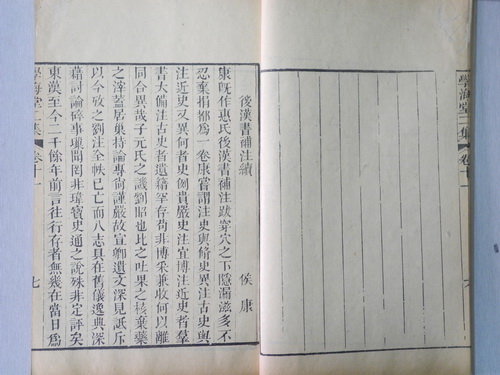 學海堂二集
卷十一
六
後漢書補注續
侯康
康旣作惠氏後漢書補注跋穿穴之下隱漏滋多不
忍棄捐都為一卷康嘗謂注史與脩史異注古史與
注近史又異何者史例貴嚴史注宜博注近史者羣
書大備注古史者遺籍罕存苟非博采兼收何以離
同合異哉子元氏之譏劉昭也比之吐果之核棄藥
之滓蓋居巢持論專尙謹嚴故宣卿遺文深見詆斥
以今攷之劉注全帙已亡而八志具在舊儀逸典深
藉討論碎事瑣聞罔非瑋寶史通之說殊非定評矣
東漢至今二千餘年前言往行存者無幾在當日為
學海堂二集
卷十一
七